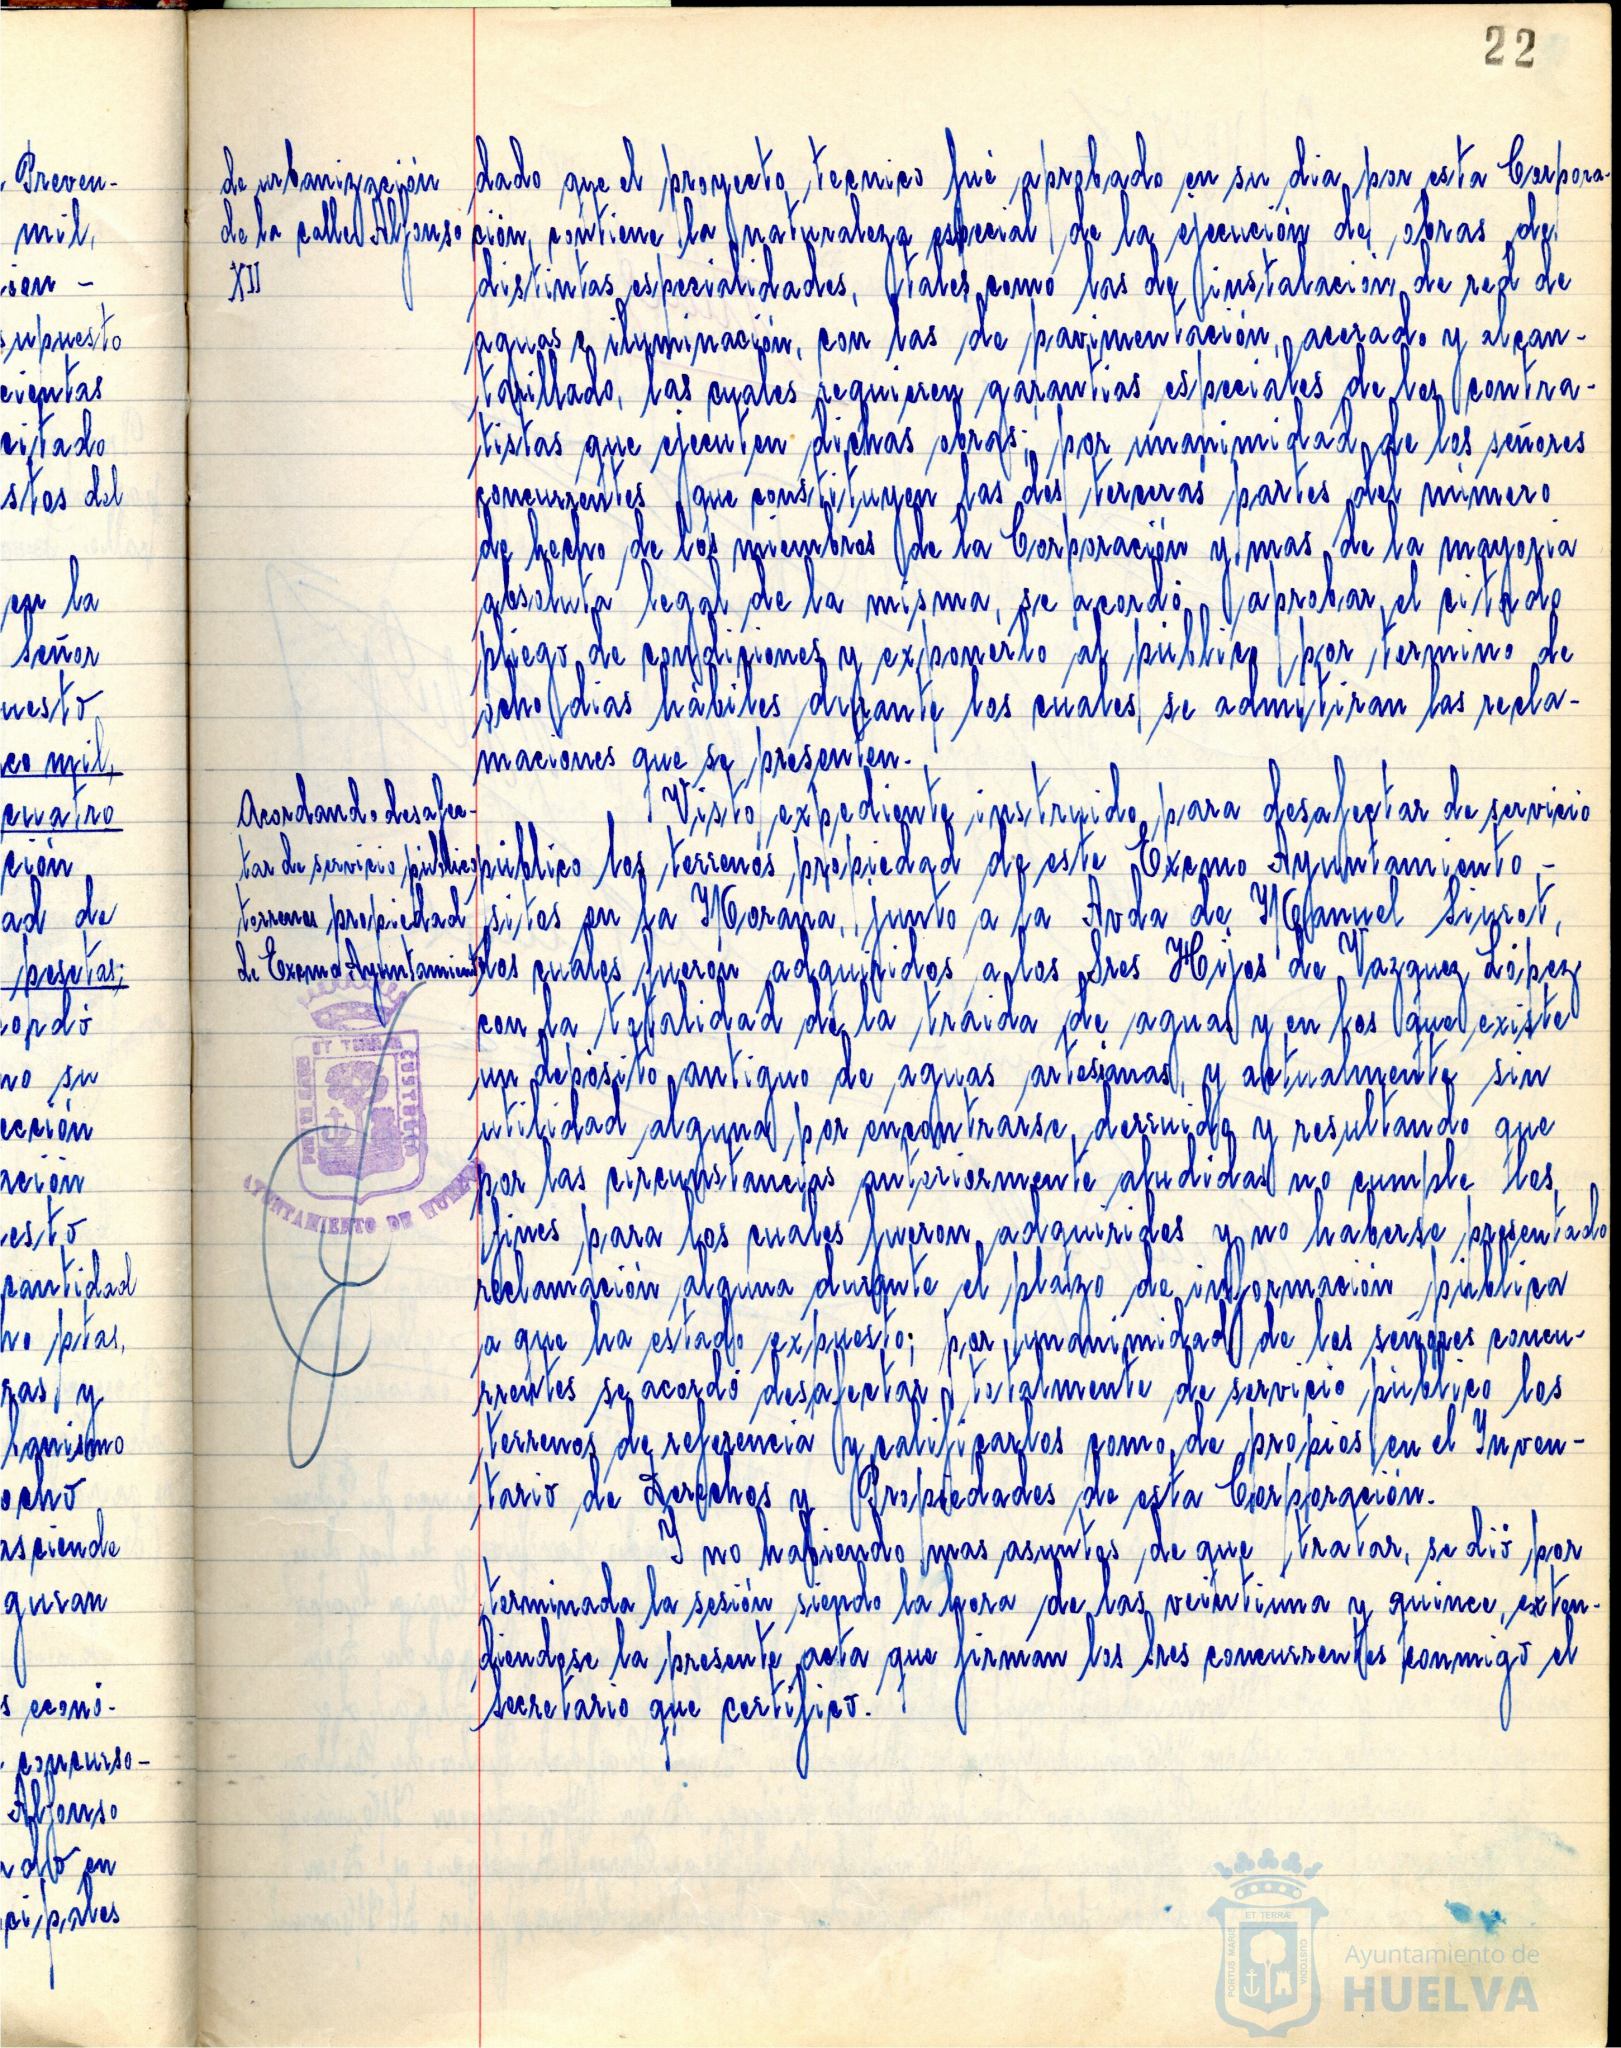 22
, Preven-
mil,
supuesto
cientas
citado
stos del
en la
señor
uesto
co mil,
cuatro
ción
ad de
pesetas;
cordó
no su
ección
ación
esto
cantidad
ho ptas,
ras y
ocho
asciende
guran
s econó-
concurso-
Alfonso
do en
cipales
de urbanización
de la calle Alfonso
XII
dado que el proyecto tecnico fué aprobado en su dia por esta Corpora-
ción, contiene la naturaleza especial de la ejecución de obras de
distintas especialidades, tales como las de instalación de red de
aguas e iluminación, con las de pavimentación, acerado y alcan-
tarillado, las cuales requieren garantias especiales de los contra-
tistas que ejecuten dichas obras; por unanimidad de los señores
concurrentes que constituyen las dos terceras partes del número
de hecho de los miembros de la Corporación y mas de la mayoria
absoluta legal de la misma, se acordó aprobar el citado
pliego de condiciones y exponerlo al público por termino de
ocho dias hábiles durante los cuales se admitiran las recla-
maciones que se presenten.
Acordando desafec-
tar de servicio público
terrenos propiedad
de Excmo Ayuntamiento
Visto expediente instruido para desafectar de servicio
público los terrenos propiedad de este Excmo Ayuntamiento -
sitos en la Morana, junto a la Avda de Manuel Siurot,
los cuales fueron adquiridos a los Sres Hijos de Vazquez López
con la totalidad de la traida de aguas y en los que existe
un depósito antiguo de aguas artesianas, y actualmente sin
utilidad alguna por encontrarse derruido y resultando que
por las circunstancias anteriormente aludidas no cumple los
fines para los cuales fueron adquiridos y no haberse presentado
reclamación alguna durante el plazo de información pública
a que ha estado expuesto; por unanimidad de los señores concu-
rrentes se acordó desafectar totalmente de servicio público los
terrenos de referencia y calificarlos como de propios en el Inven-
tario de Derechos y Propiedades de esta Corporación.
Y no habiendo mas asuntos de que tratar, se dió por
terminada la sesión siendo la hora de las veintiuna y quince, exten-
diendose la presente acta que firman los Sres concurrentes conmigo el
Secretario que certifico.
ET TERRAE
CUSTODIA
AYUNTAMIENTO DE HUELVA
ET TERRÆ
PORTUS MARIS
CUSTODIA
Ayuntamiento de
HUELVA